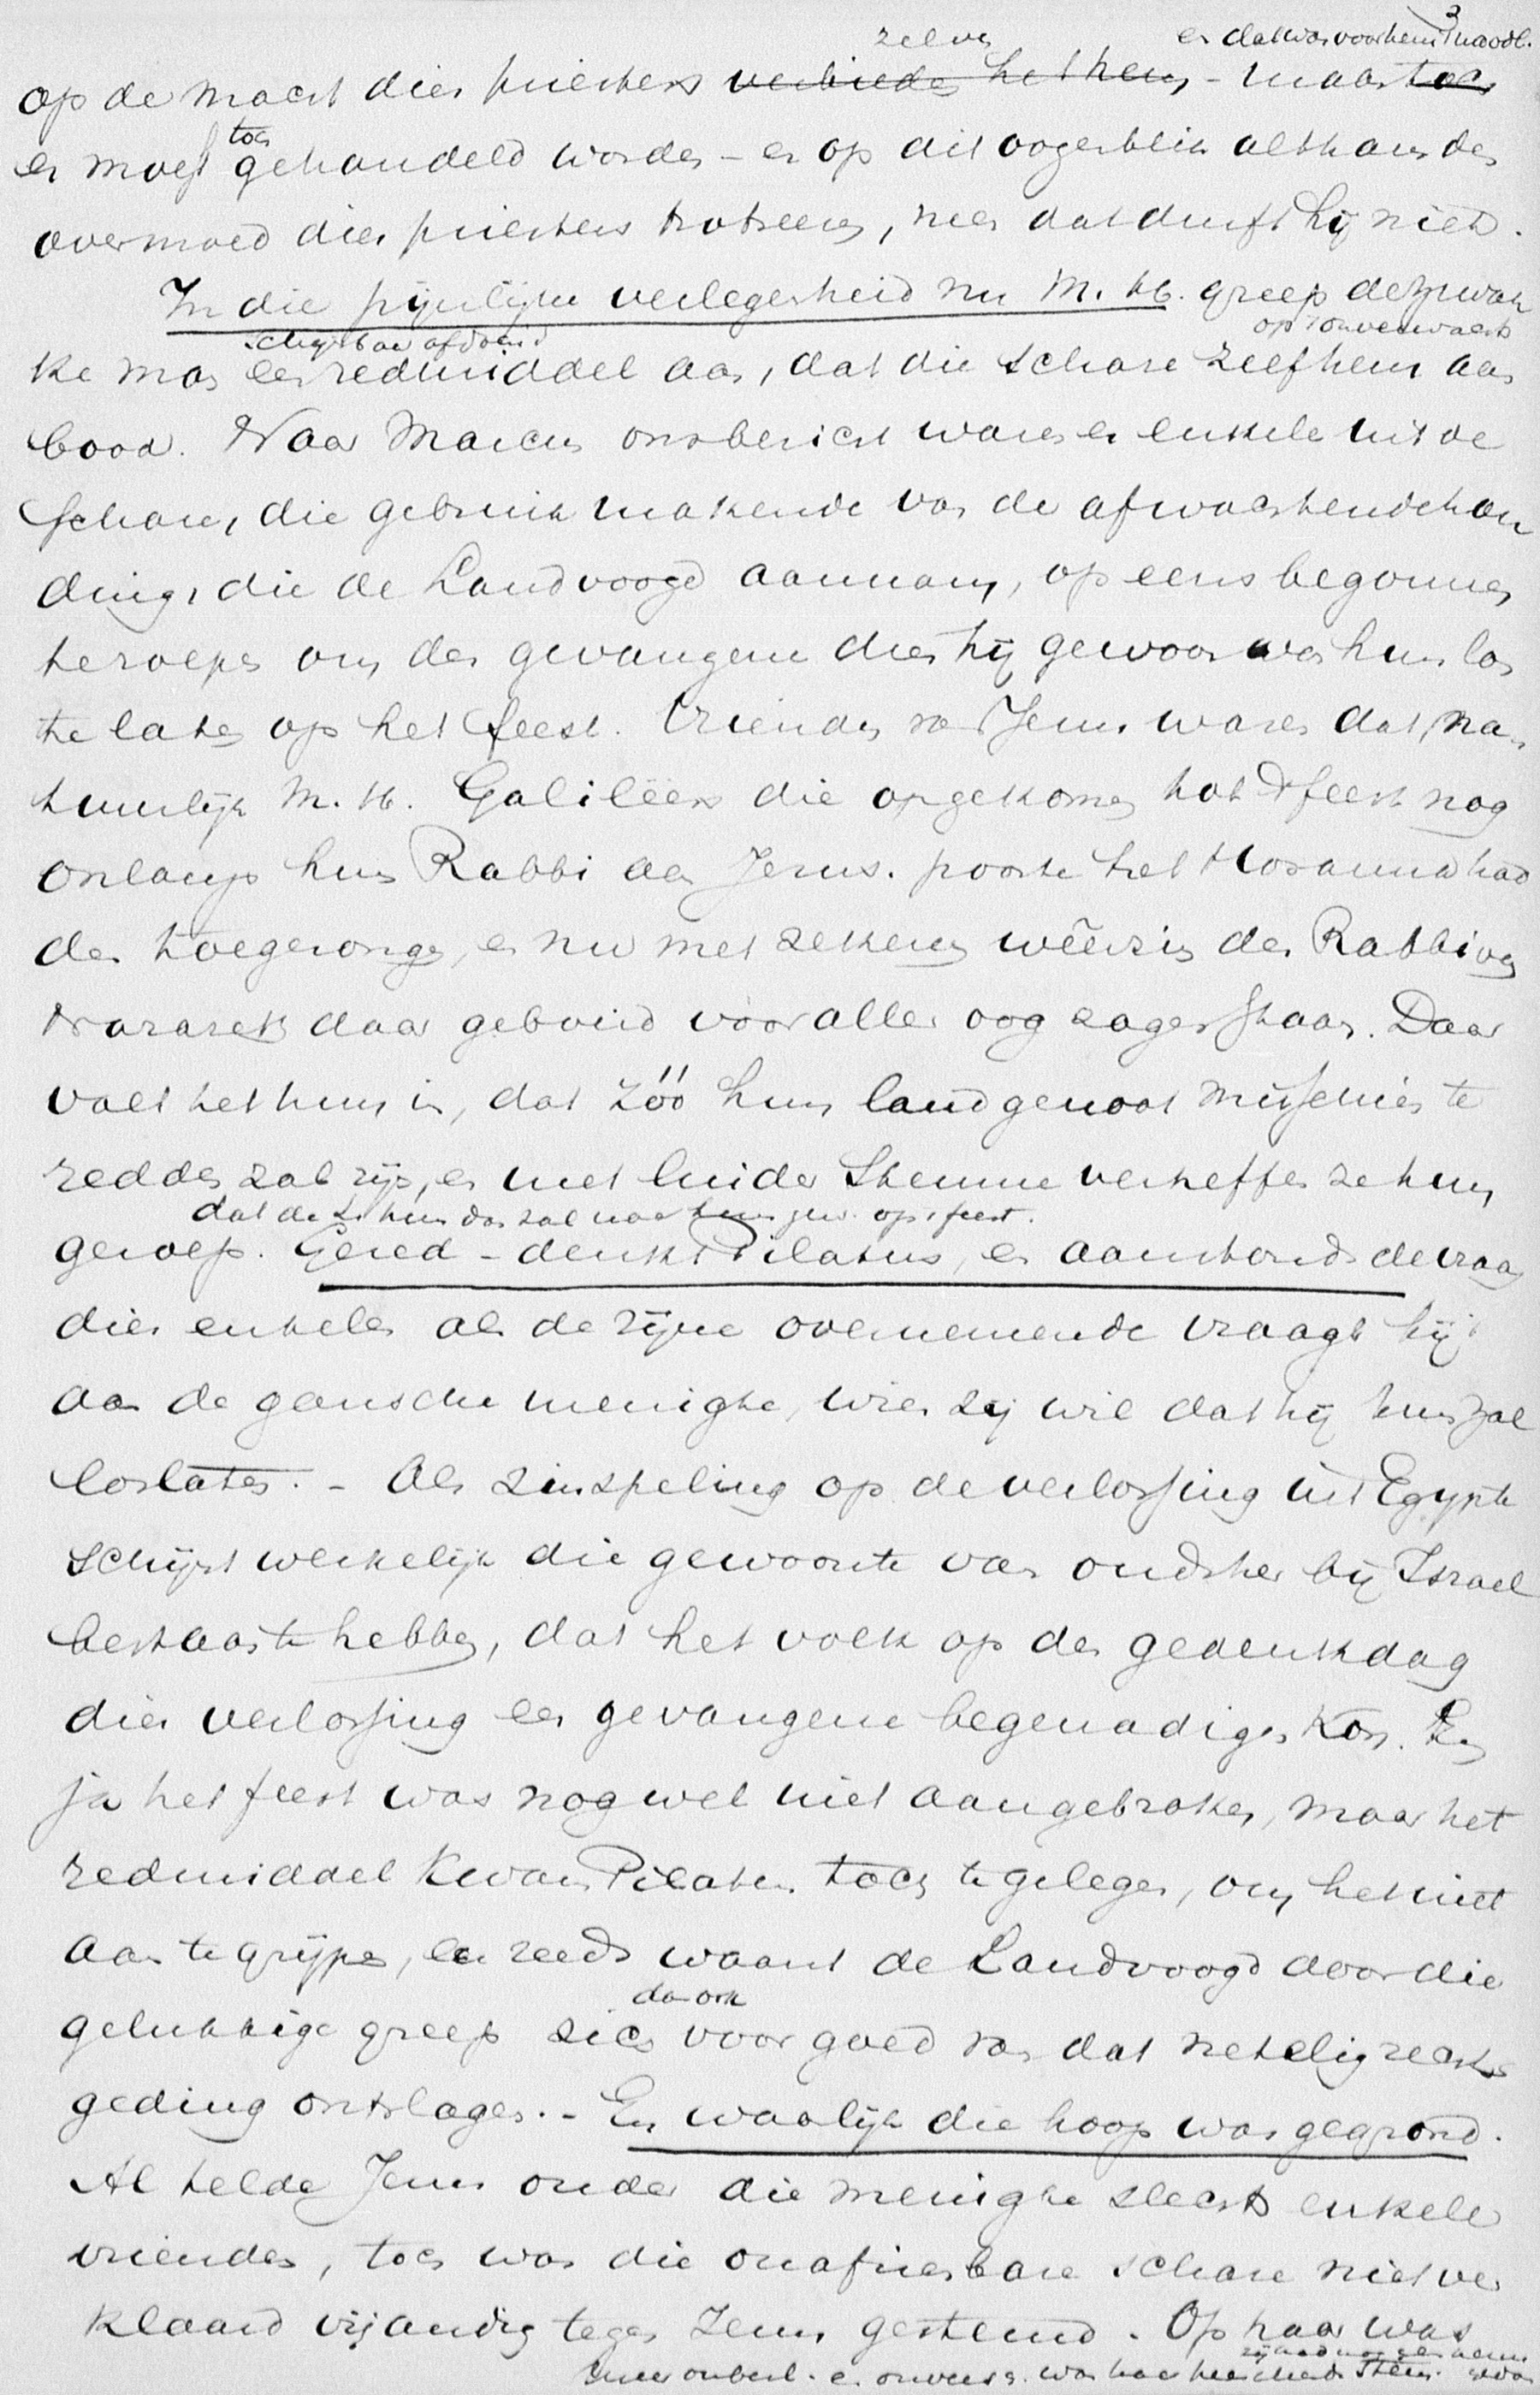 zelve en dat was voor hem 't noodl. 3
op de macht dier priesters verbiedt het hem - maar toch
er moest toch gehandeld worden - en op dit oogenblik althans den
overmoed dier priesters trotseeren, neen dat durft hij niet.
In die pijnlijke verlegenheid nu M. H. greep de zwak
schijnbaar afdoend op 't onverwachts
ke man een redmiddel aan, dat die schare zelf hem aan
bood. Naar Marcus ons bericht waren er enkele uit de
schare, die gebruik makende van de afwachtende hou
ding, die de Landvoogd aannam, op eens begonnen
te roepen om den gevangene dien hij gewoon was hun los
te laten op het feest. Vrienden van Jezus waren dat, na
tuurlijk M. H. Galileërs die opgekomen tot 't feest nog
onlangs hun Rabbi aan Jerus. poorte het Hosanna had
den toegezongen, en nu met zekeren weêrzin den Rabbi van
Nazareth daar geboeid voor aller oog zagen staan. Daar
valt het hun in, dat zóó hun landgenoot misschien te
redden zal zijn, en met luider stemme verheffen ze hun
dat de L. hun doe zal naar hun gew. op 't feest.
geroep. Gered - denkt Pilatus, en aanstonds de vraag
dier enkelen als de zijne overnemende vraagt hij
aan de gansche menigte, wien zij wil dat hij hun zal
loslaten. - Als zinspeling op de verlossing uit Egypte
schijnt werkelijk die gewoonte van oudsher bij Israel
bestaan te hebben, dat het volk op den gedenkdag
dier verlossing een gevangene begenadigen kon. En
ja het feest was nog wel niet aangebroken, maar het
redmiddel kwam Pilatus toch te gelegen, om het niet
aan te grijpen, en reeds waant de Landvoogd door die
dan ook
gelukkige greep zich voor goed van dat netelig rechts
geding ontslagen. - En waarlijk die hoop was gegrond.
Al telde Jezus onder die menigte slechts enkele
vrienden, toch was die onafzienbare schare niet ver
klaard vijandig tegen Jezus gestemd. Op haar was
meer onbesl. en onversch. was haar heerschende stem.